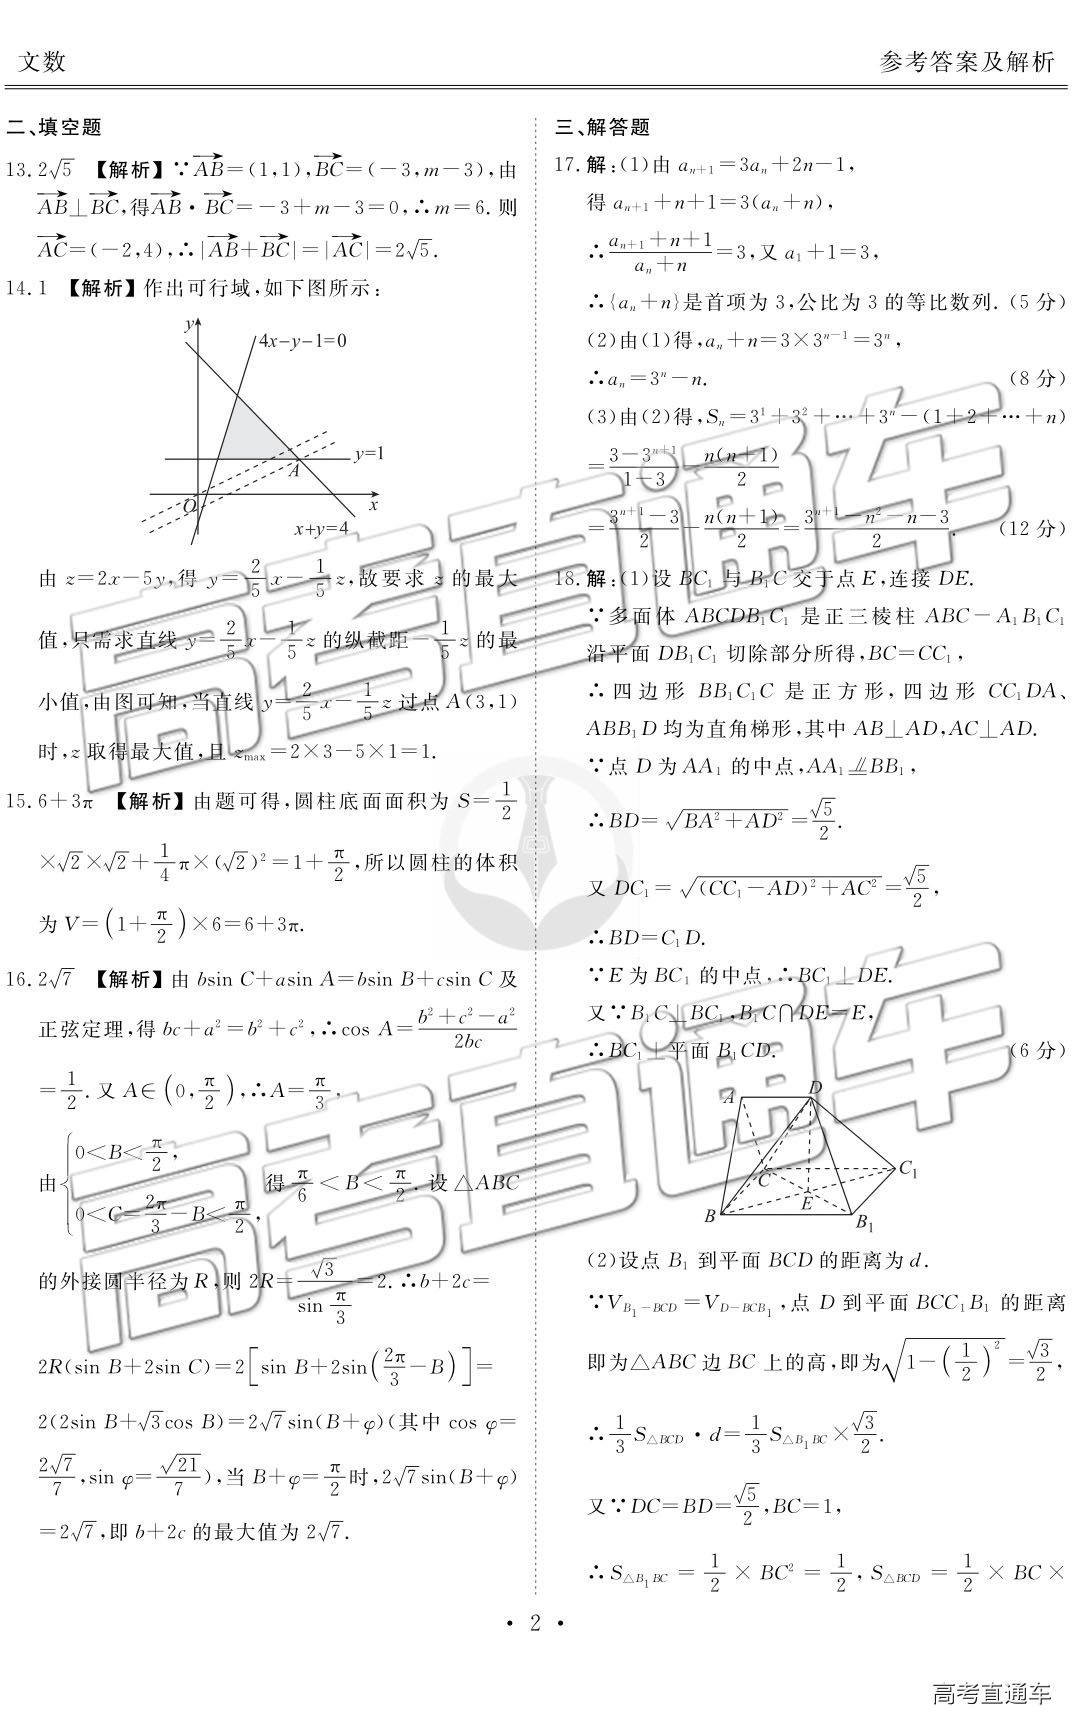 文数
参考答案及解析
二、填空题
13. 2√5 【解析】∵AB→=(1,1),BC→=(-3,m-3),由
AB→⊥BC→,得AB→·BC→=-3+m-3=0,∴m=6. 则
AC→=(-2,4),∴|AB→+BC→|=|AC→|=2√5.
14. 1 【解析】作出可行域,如下图所示:
y
4x-y-1=0
y=1
A
O
x
x+y=4
由 z=2x-5y,得 y=2/5x-1/5z,故要求 z 的最大
值,只需求直线 y=2/5x-1/5z 的纵截距-1/5z 的最
小值,由图可知,当直线 y=2/5x-1/5z 过点 A(3,1)
时,z 取得最大值,且 zmax=2×3-5×1=1.
15. 6+3π 【解析】由题可得,圆柱底面面积为 S=1/2
×√2×√2+1/4π×(√2)²=1+π/2,所以圆柱的体积
为 V=(1+π/2)×6=6+3π.
16. 2√7 【解析】由 bsin C+asin A=bsin B+csin C 及
正弦定理,得 bc+a²=b²+c²,∴cos A=(b²+c²-a²)/2bc
=1/2. 又 A∈(0,π/2),∴A=π/3,
由{0<B<π/2, 0<C=2π/3-B<π/2, 得 π/6<B<π/2. 设△ABC
的外接圆半径为 R,则 2R=√3/sin π/3=2. ∴b+2c=
2R(sin B+2sin C)=2[sin B+2sin(2π/3-B)]=
2(2sin B+√3cos B)=2√7sin(B+φ)(其中 cos φ=
2√7/7,sin φ=√21/7),当 B+φ=π/2时,2√7sin(B+φ)
=2√7,即 b+2c 的最大值为 2√7.
三、解答题
17. 解:(1)由 aₙ₊₁=3aₙ+2n-1,
得 aₙ₊₁+n+1=3(aₙ+n),
∴(aₙ₊₁+n+1)/(aₙ+n)=3,又 a₁+1=3,
∴{aₙ+n}是首项为 3,公比为 3 的等比数列. (5 分)
(2)由(1)得,aₙ+n=3×3ⁿ⁻¹=3ⁿ,
∴aₙ=3ⁿ-n. (8 分)
(3)由(2)得,Sₙ=3¹+3²+…+3ⁿ-(1+2+…+n)
=(3-3ⁿ⁺¹)/(1-3)-n(n+1)/2
=(3ⁿ⁺¹-3)/2-n(n+1)/2=(3ⁿ⁺¹-n²-n-3)/2. (12 分)
18. 解:(1)设 BC₁ 与 B₁C 交于点 E,连接 DE.
∵多面体 ABCDB₁C₁ 是正三棱柱 ABC-A₁B₁C₁
沿平面 DB₁C₁ 切除部分所得,BC=CC₁,
∴四边形 BB₁C₁C 是正方形,四边形 CC₁DA、
ABB₁D 均为直角梯形,其中 AB⊥AD,AC⊥AD.
∵点 D 为 AA₁ 的中点,AA₁⫽BB₁,
∴BD=√(BA²+AD²)=√5/2.
又 DC₁=√((CC₁-AD)²+AC²)=√5/2,
∴BD=C₁D.
∵E 为 BC₁ 的中点,∴BC₁⊥DE.
又∵B₁C⊥BC₁,B₁C∩DE=E,
∴BC₁⊥平面 B₁CD. (6 分)
A
D
C
C₁
E
B
B₁
(2)设点 B₁ 到平面 BCD 的距离为 d.
∵V_{B₁-BCD}=V_{D-BCB₁},点 D 到平面 BCC₁B₁ 的距离
即为△ABC 边 BC 上的高,即为√(1-(1/2)²)=√3/2,
∴1/3S△BCD·d=1/3S△B₁BC×√3/2.
又∵DC=BD=√5/2,BC=1,
∴S△B₁BC=1/2×BC²=1/2,S△BCD=1/2×BC×
· 2 ·
高考直通车
高考直通车
高考直通车